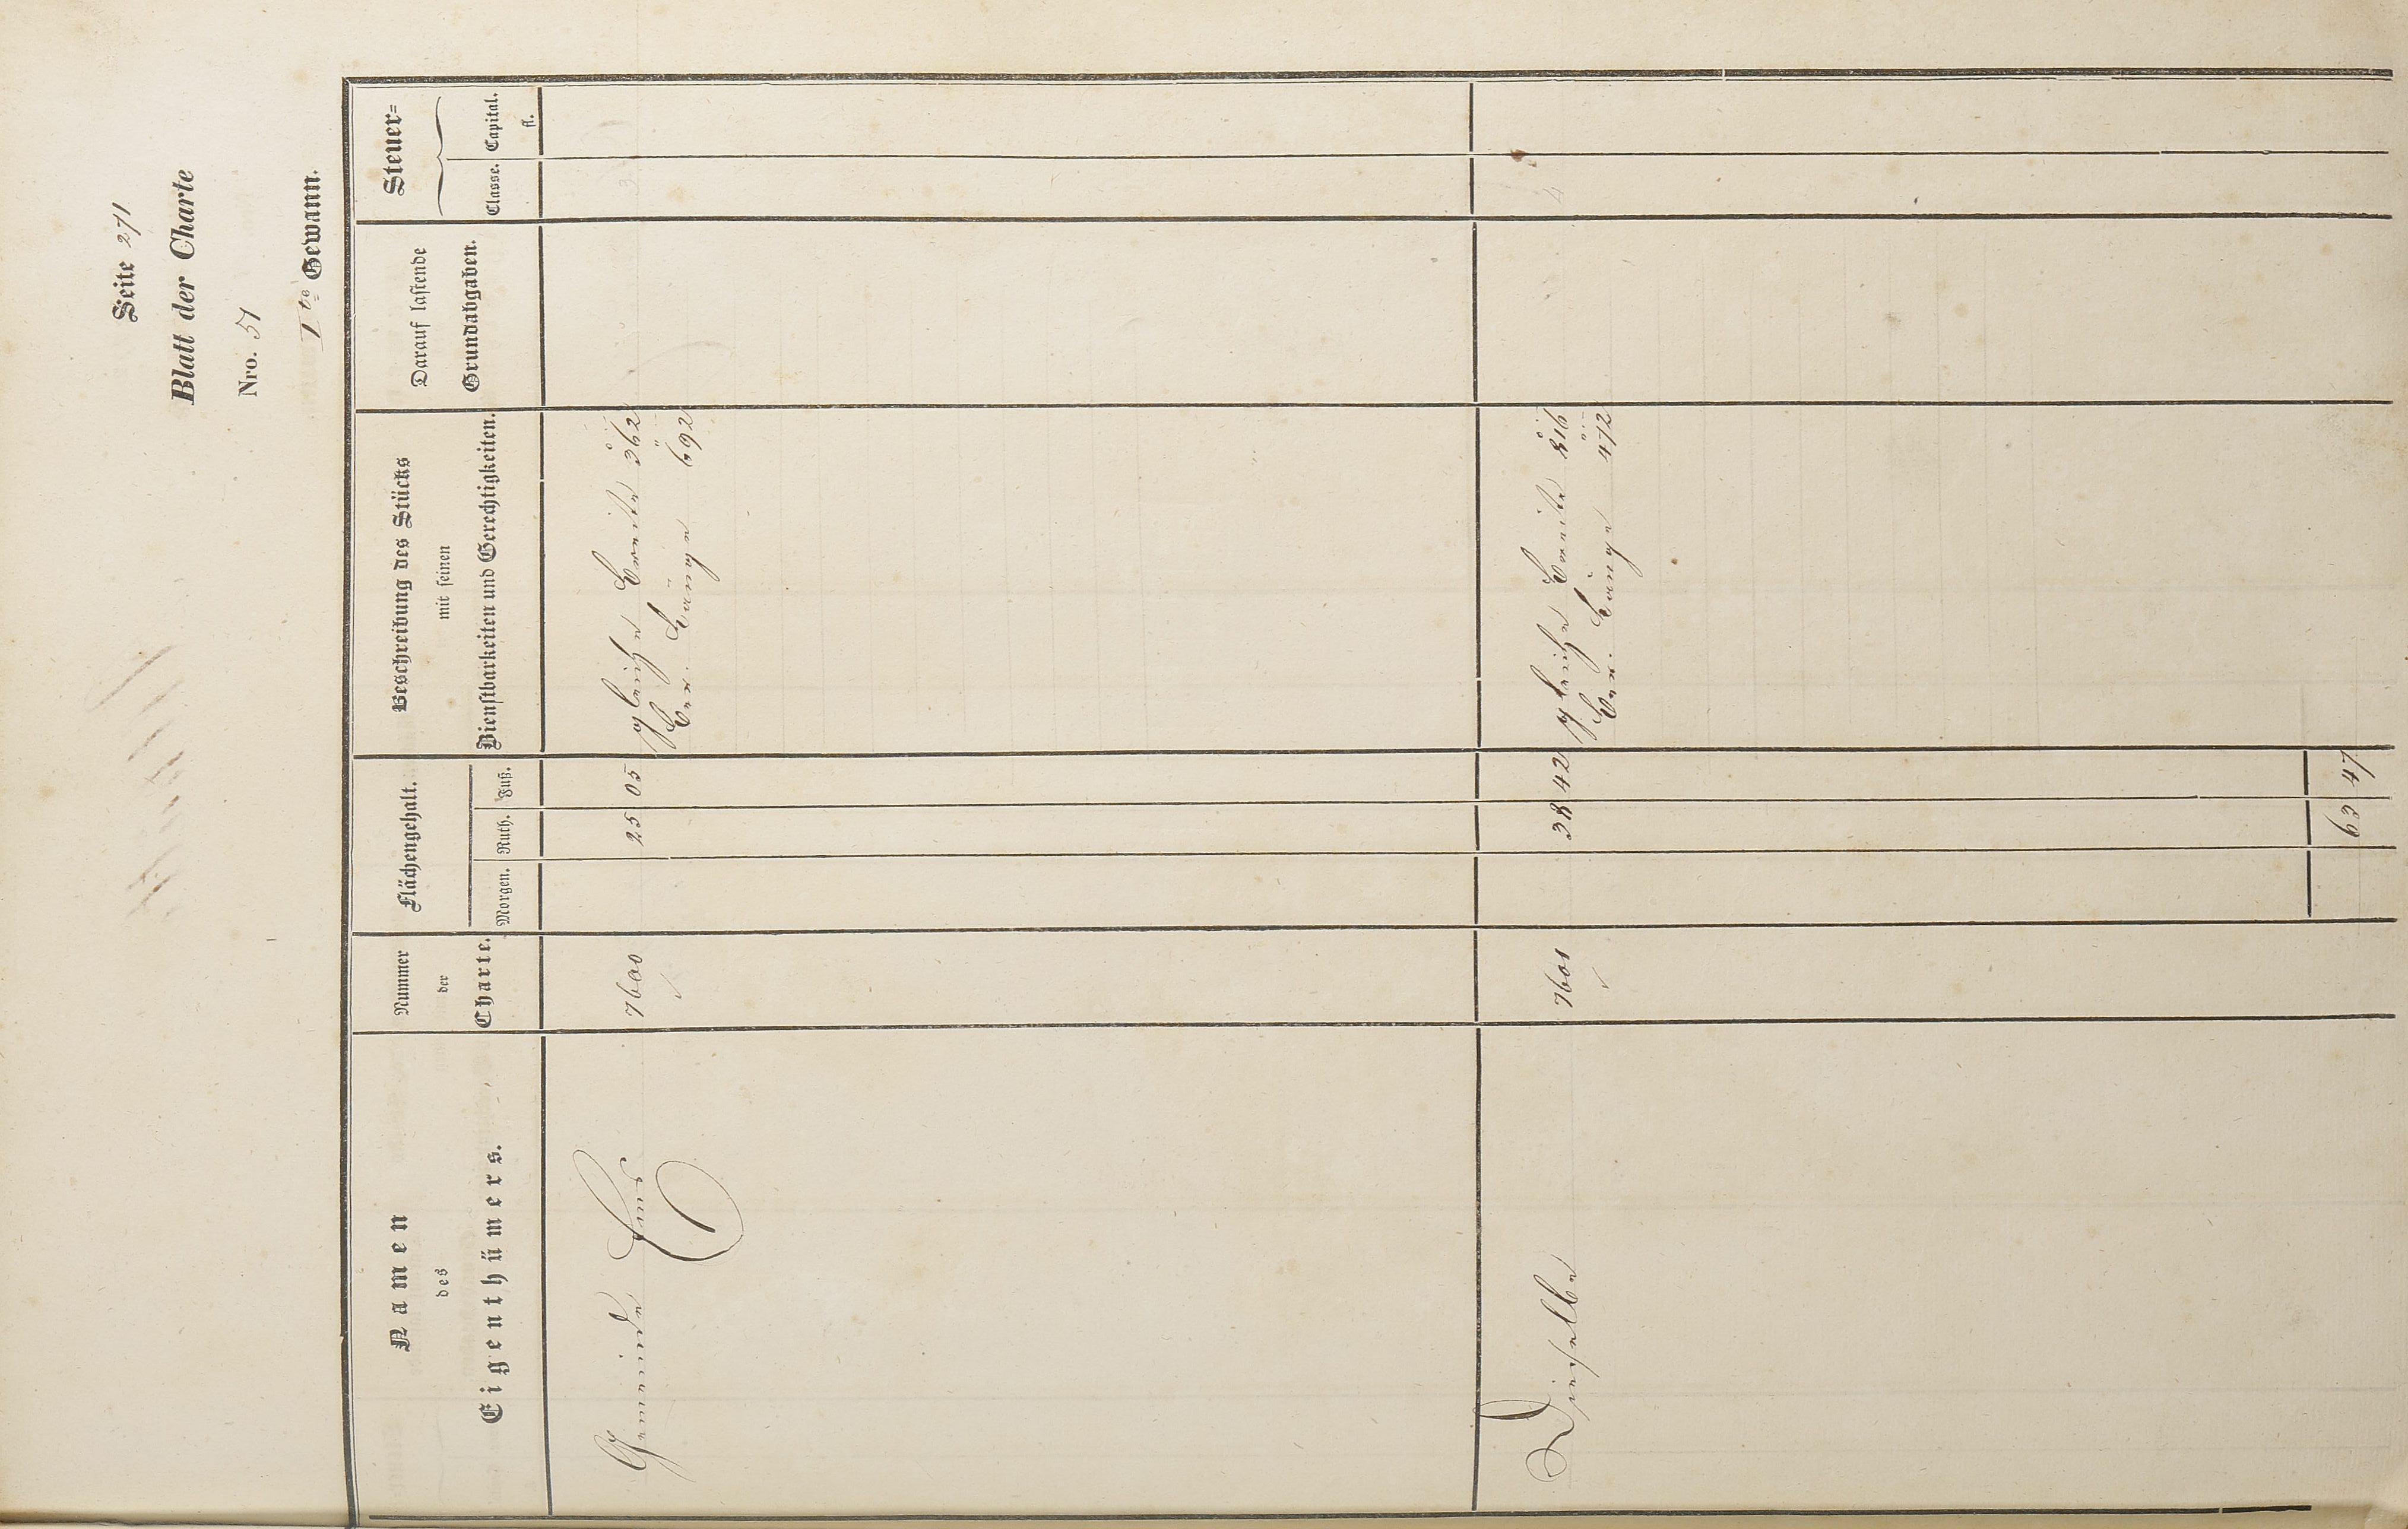 Seite 271
Blatt der Charte
Nro. 51
1te Gewann.
Namen
des
Eigenthümers.
Nummer
der
Charte.
Flächengehalt.
Morgen. Ruth. Fuß.
Beschreibung des Stücks
mit seinen
Dienstbarkeiten und Gerechtigkeiten.
Darauf lastende
Grundabgaben.
Steuer=
Classe. Capital.
fl.
Gemeinde 7600 25 05 gleiche Breite 362
Ber. Länge 692
Dieselbe 7601 38 42 gleiche Breite 816
Ber. Länge 472
63 47